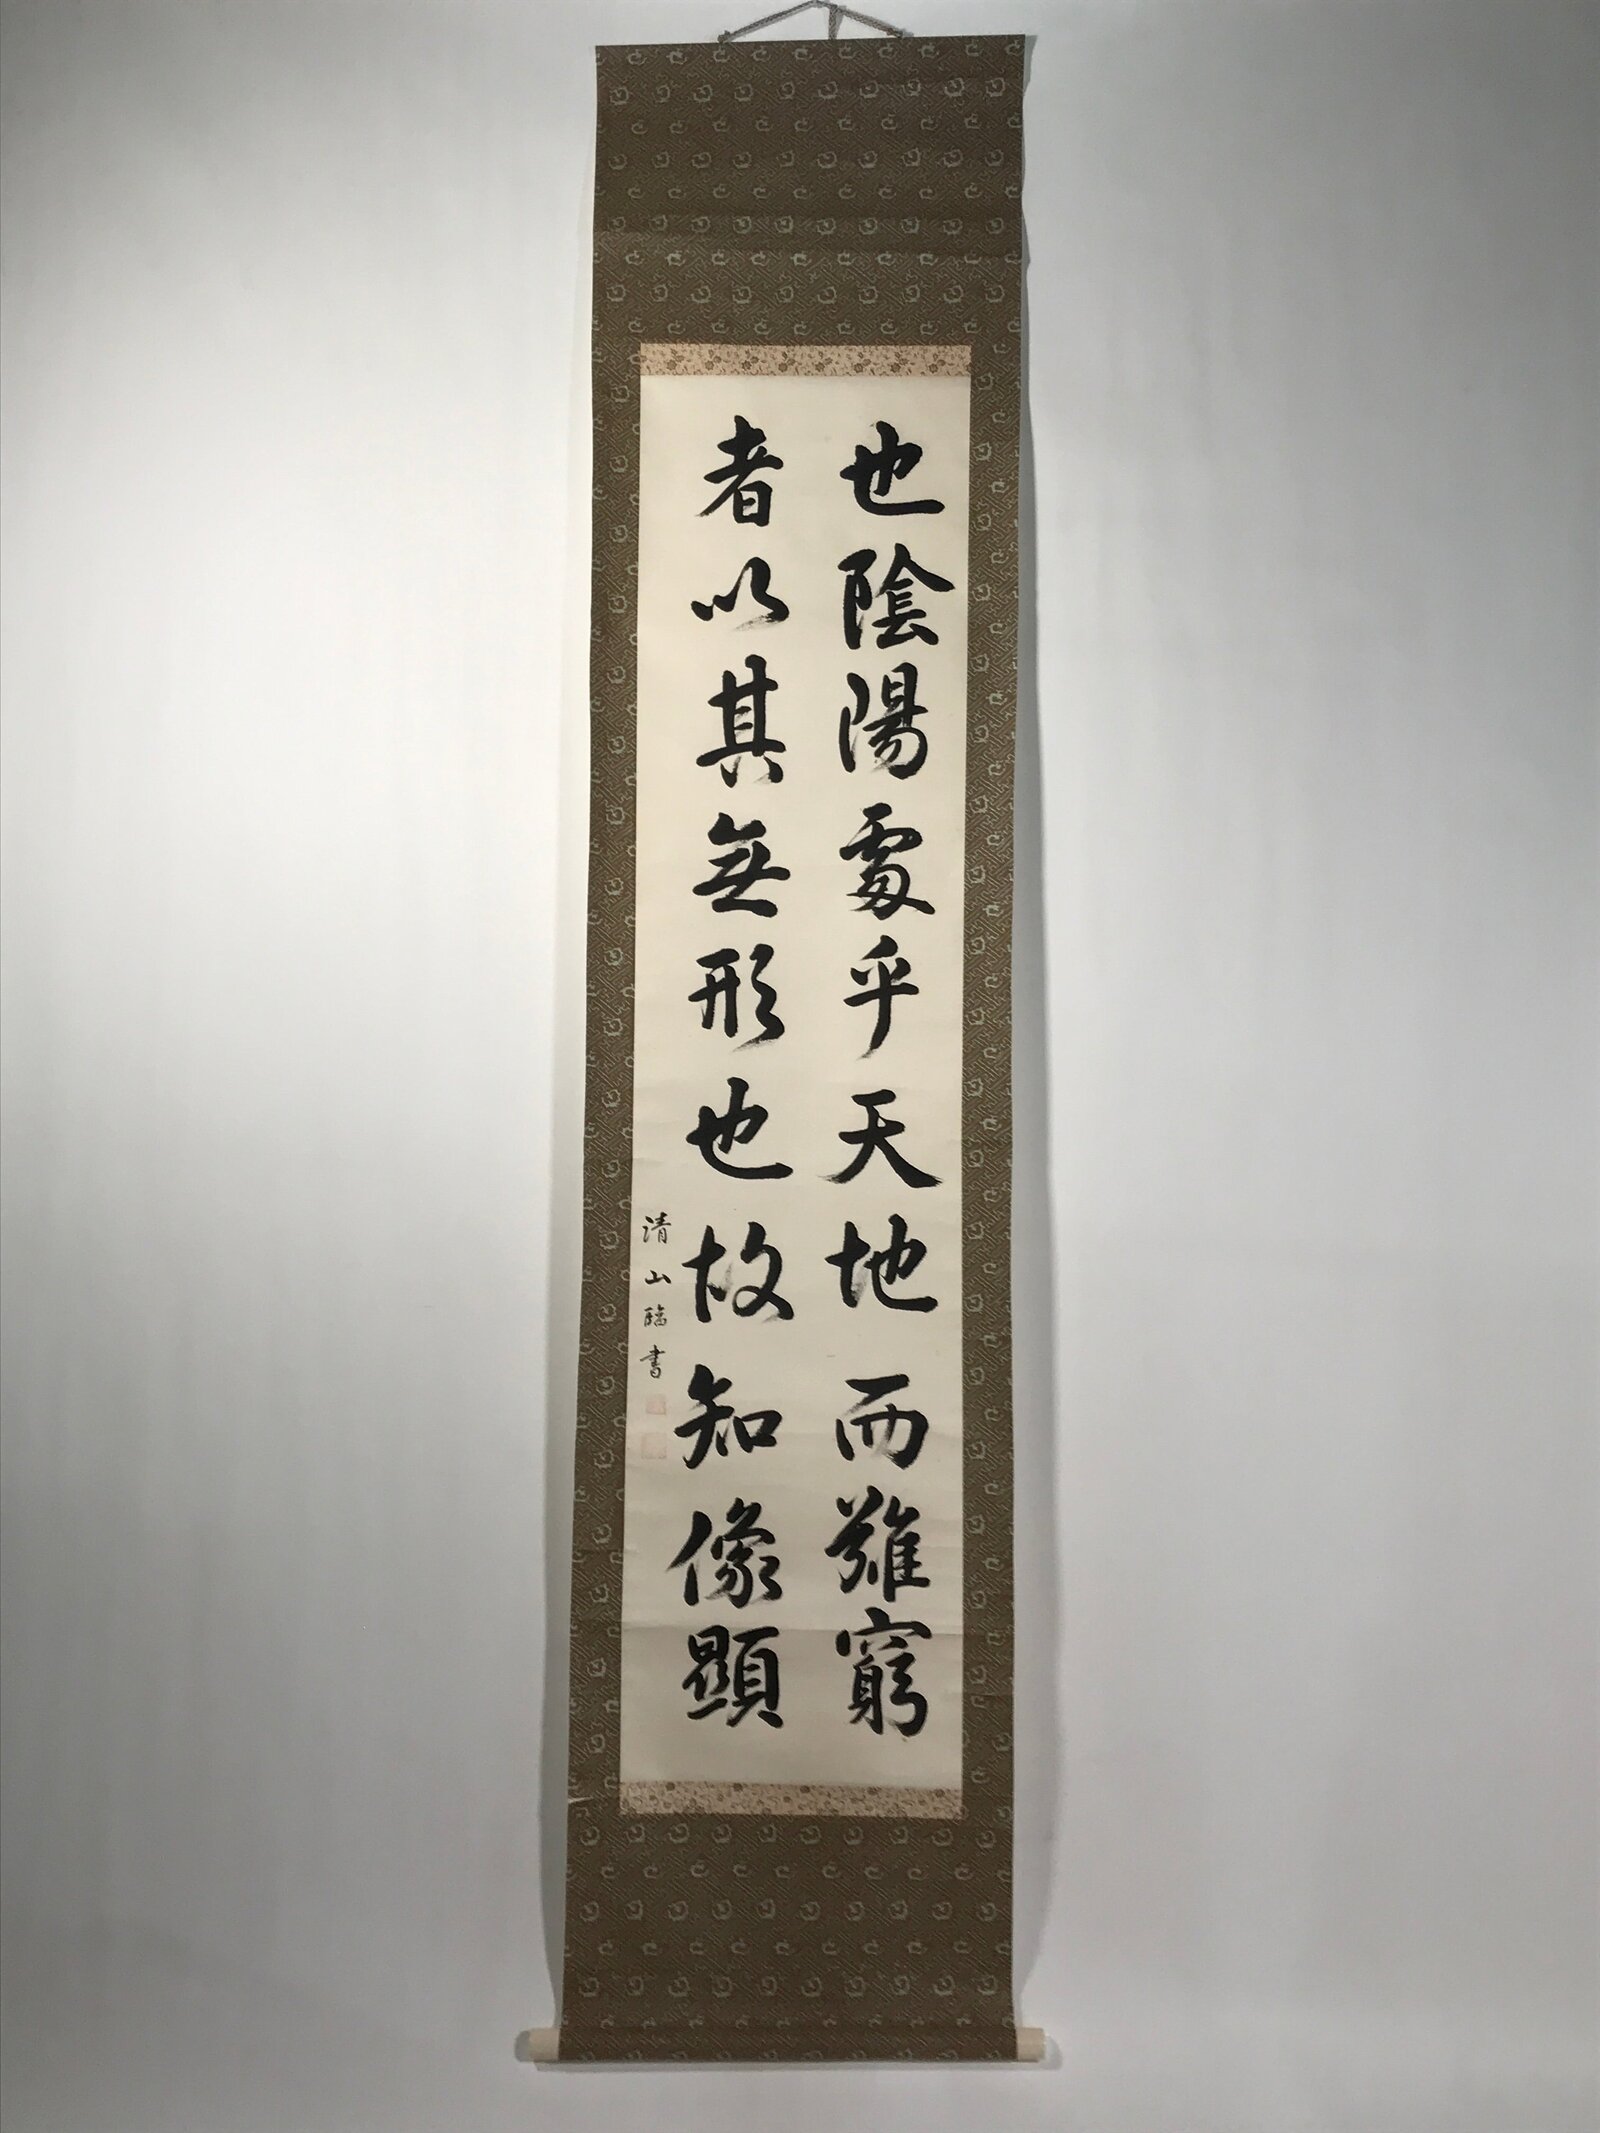 也陰陽處乎天地而難窮
者以其無形也故知像顯
清山臨書